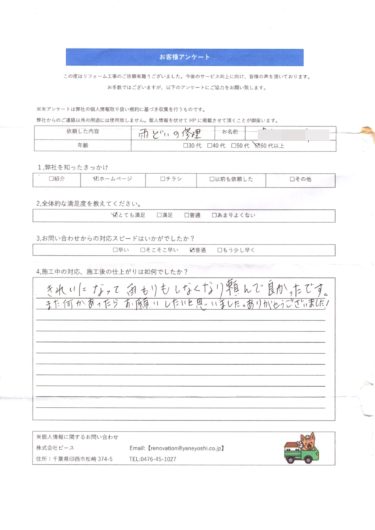 お客様アンケート
この度はリフォーム工事のご依頼有難うございました。今後のサービス向上に向け、皆様の声を頂いております。
お手数ではございますが、以下のアンケートにご協力をお願い致します。
※本アンケートは弊社の個人情報取り扱い規約に基づき収集を行うものです。
弊社からのご連絡以外の用途には使用致しません。個人情報を伏せてHPに掲載させて頂くことが御座います。
依頼した内容 雨どいの修理 お名前
年齢 □30代 □40代 □50代 ☑60代以上
1.弊社を知ったきっかけ
□紹介 ☑ホームページ □チラシ □以前も依頼した □その他
2.全体的な満足度を教えてください。
☑とても満足 □満足 □普通 □あまりよくない
3.お問い合わせからの対応スピードはいかがでしたか?
□早い □そこそこ早い ☑普通 □もう少し早く
4.施工中の対応、施工後の仕上がりは如何でしたか?
きれいになって雨もりもしなくなり頼んで良かったです。
また何かあったらお願いしたいと思いました。ありがとうございました!
※個人情報に関するお問い合わせ
株式会社ピース Email:【renovation@yaneyoshi.co.jp】
住所:千葉県印西市松崎374-5 TEL:0476-45-1027